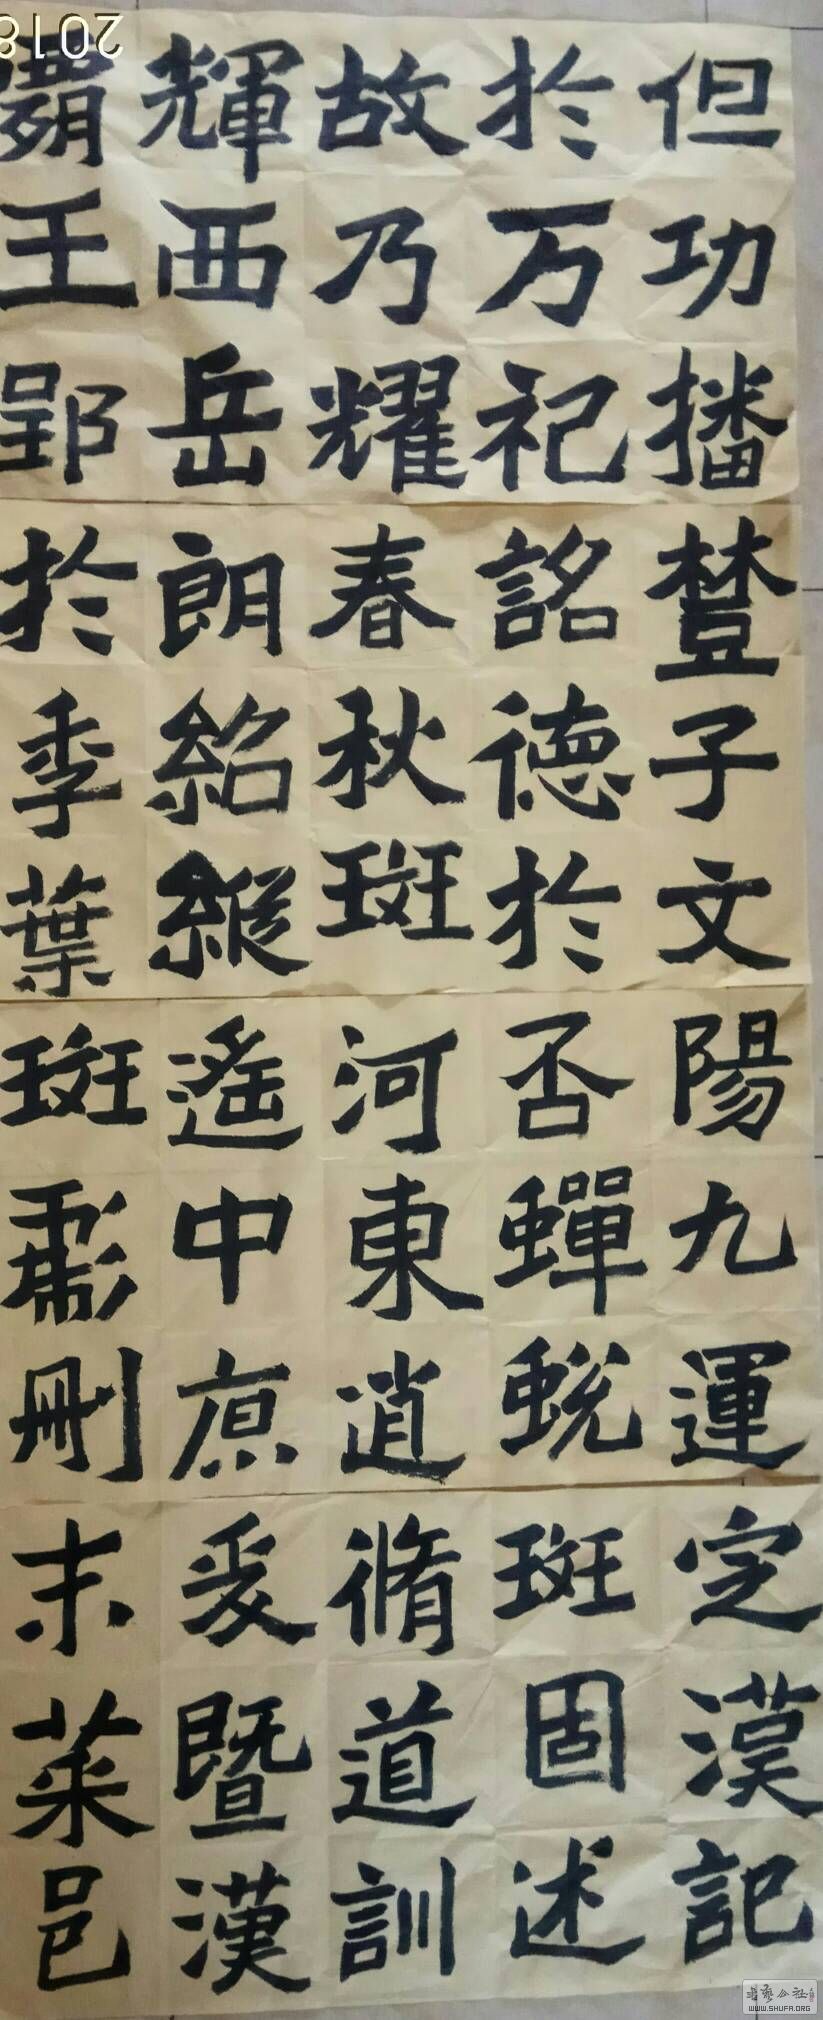 但功播
於万祀
故乃耀
輝西岳
霸王郢
楚子文
銘德於
春秋斑
朗紹縱
於季葉
陽九運
否蟬蛻
河東逍
遙中原
斑彪刪
定漢記
斑固述
脩道訓
爰暨漢
末菜邑
2018
WWW.SHUFA.ORG